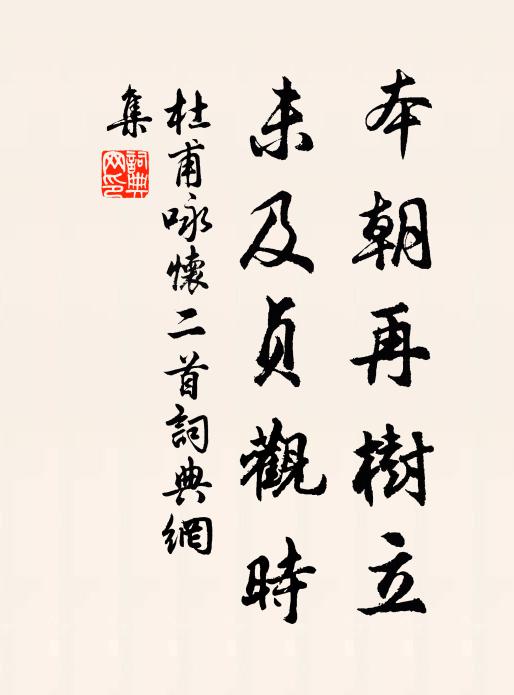 本朝再樹立
未及貞觀時
杜甫咏懷二首詞典網
集
詞典
网印